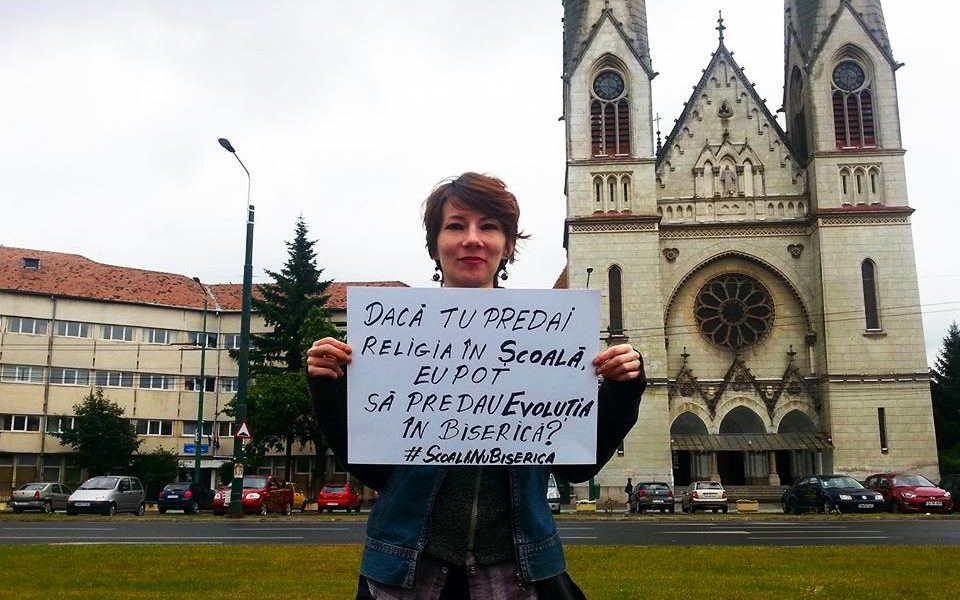 DACĂ TU PREDAI
RELIGIA ÎN ȘCOALĂ,
EU POT
SĂ PREDAU EVOLUȚIA
ÎN BISERICĂ?
#ȘCOALĂNUBISERICĂ